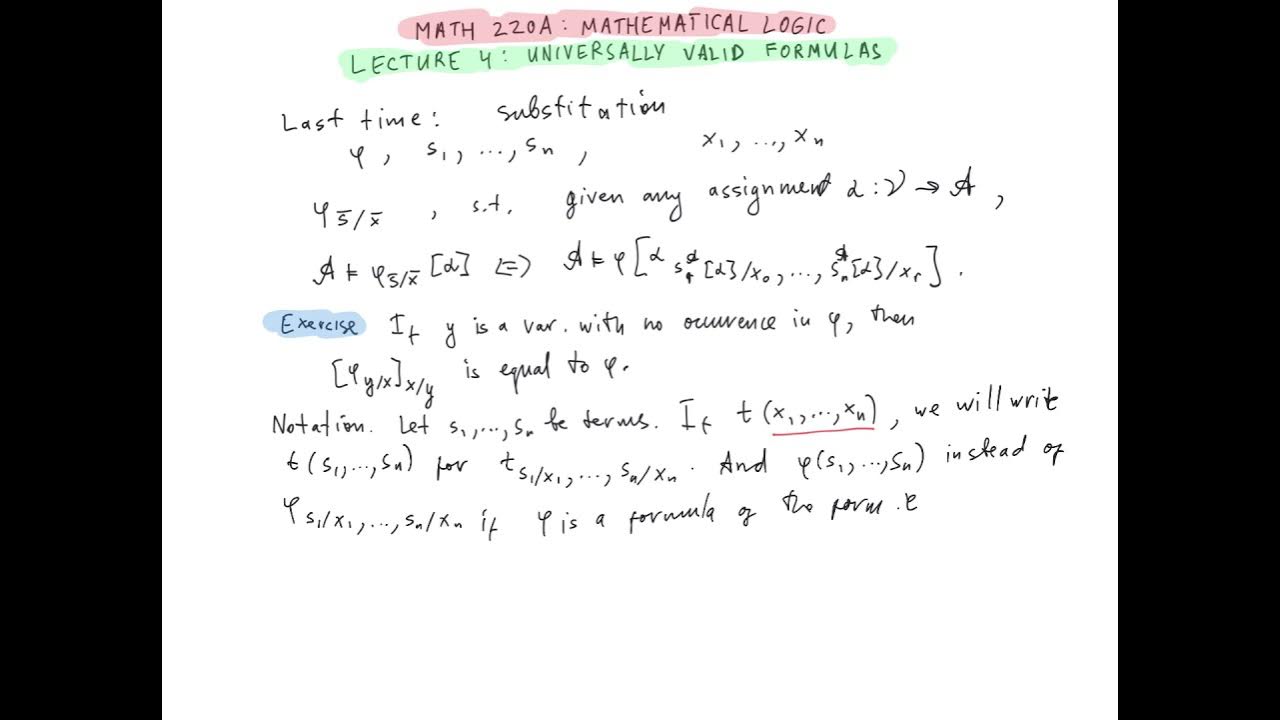 MATH 220A: MATHEMATICAL LOGIC
LECTURE 4: UNIVERSALLY VALID FORMULAS
Last time: substitution
φ, s₁, ..., sₙ, x₁, ..., xₙ
φ s̄/x̄, s.t. given any assignment α: 𝒱 → 𝒜,
𝒜 ⊨ φ s̄/x̄ [α] ⇔ 𝒜 ⊨ φ[α s₁^𝒜[α]/x₀, ..., sₙ^𝒜[α]/xᵣ].
Exercise If y is a var. with no occurrence in φ, then
[φ y/x] x/y is equal to φ.
Notation. Let s₁, ..., sₙ be terms. If t(x₁, ..., xₙ), we will write
t(s₁, ..., sₙ) for t s₁/x₁, ..., sₙ/xₙ. And φ(s₁, ..., sₙ) instead of
φ s₁/x₁, ..., sₙ/xₙ if φ is a formula of the form